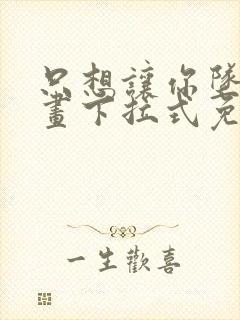 只想讓你墜
畫下拉式免
一生歡喜